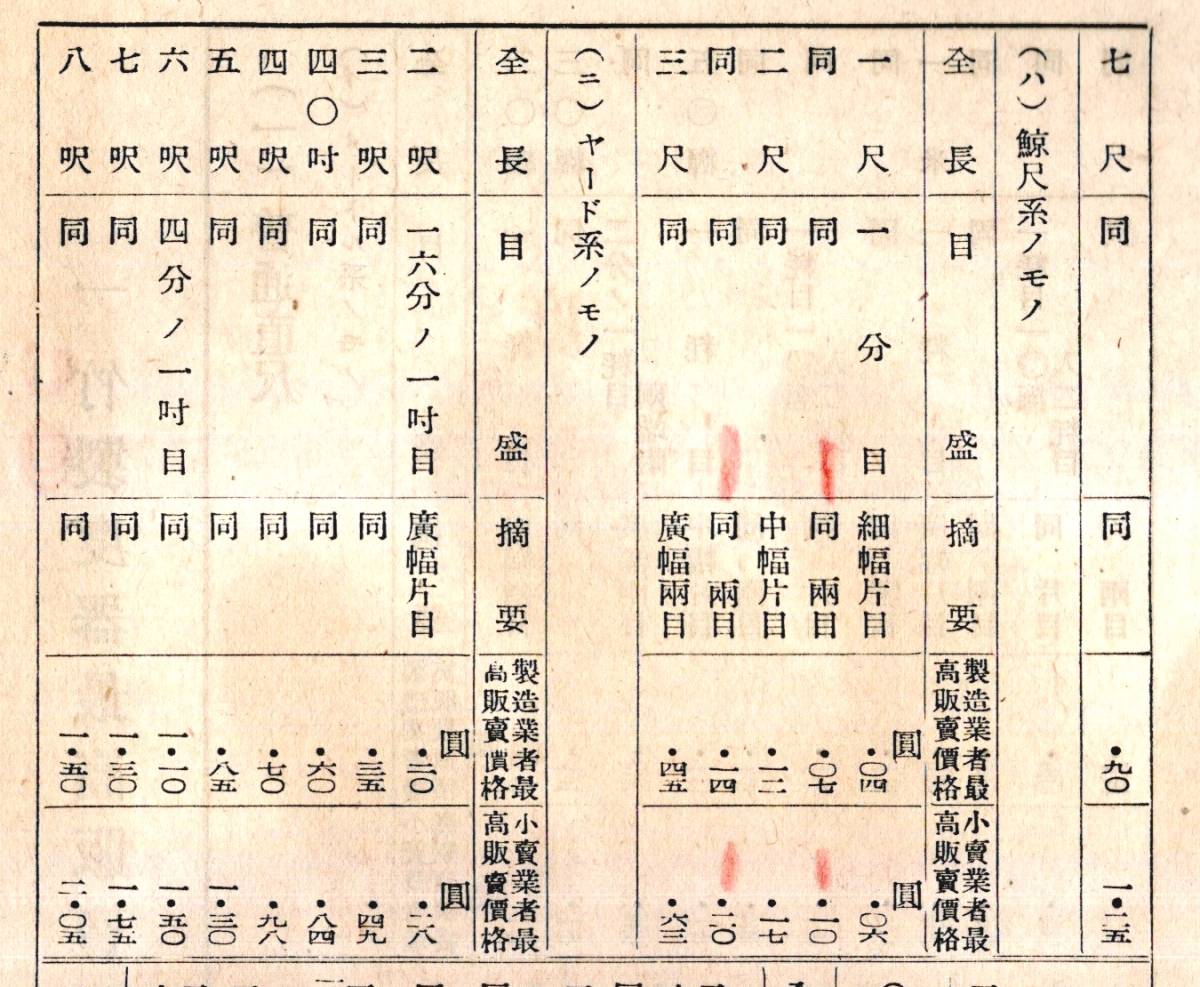 七尺 同 同 兩目 ・九〇 一・二五
(ハ)鯨尺系ノモノ
全長 目盛 摘要 製造業者最高販賣價格 小賣業者最高販賣價格
一尺 一分目 細幅片目 ・〇四圓 ・〇六圓
同 同 同 兩目 ・〇七 ・一〇
二尺 同 中幅片目 ・一二 ・一七
同 同 同 兩目 ・一四 ・二〇
三尺 同 廣幅兩目 ・四五 ・六三
(ニ)ヤード系ノモノ
全長 目盛 摘要 製造業者最高販賣價格 小賣業者最高販賣價格
二呎 一六分ノ一吋目 廣幅片目 ・二〇圓 ・二八圓
三呎 同 同 ・三五 ・四九
四〇吋 同 同 ・六〇 ・八四
四呎 同 同 ・七〇 ・九八
五呎 同 同 ・八五 一・三〇
六呎 四分ノ一吋目 同 一・一〇 一・五〇
七呎 同 同 一・三〇 一・七五
八呎 同 同 一・五〇 二・〇五